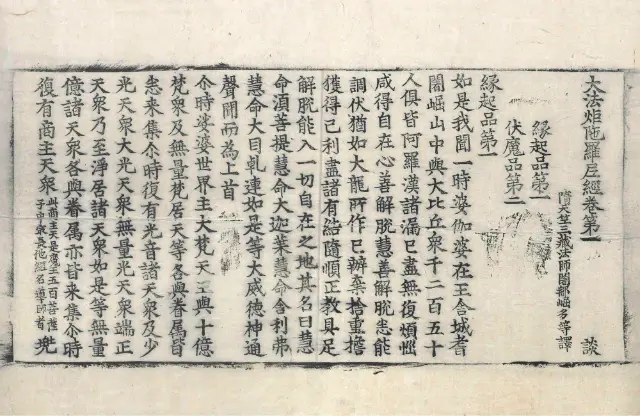 大法炬陀羅尼經卷第一 談
隋天竺三藏法師闍那崛多等譯
緣起品第一
伏魔品第二
緣起品第一
如是我聞一時婆伽婆在王舍城耆
闍崛山中與大比丘衆千二百五十
人俱皆阿羅漢諸漏已盡無復煩惱
咸得自在心善解脫慧善解脫悉能
調伏猶如大龍所作已辦棄捨重擔
獲得己利盡諸有結隨順正教具足
解脫能入一切自在之地其名曰慧
命須菩提慧命大迦葉慧命舍利弗
慧命大目乹連如是等大威德神通
聲聞而為上首
尒時娑婆世界主大梵天王與十億
梵衆及無量梵居天等各與眷属皆
悉来集尒時復有光音諸天衆及少
光天衆大光天衆無量光天衆端正
天衆乃至淨居諸天衆如是等無量
億諸天衆各與眷属亦皆来集尒時
復有商主天衆 此商主天是魔王五百菩薩子中衆長他經名導師者 兜